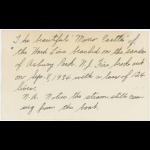 The beautiful "Morro Castle" of
the Ward Line beached on the sands
of Asbury Park N.J. Fire broke out
on Sep. 8, 1934 with a loss of 124
lives.
N.B. Notice the steam still com-
ing from the boat.